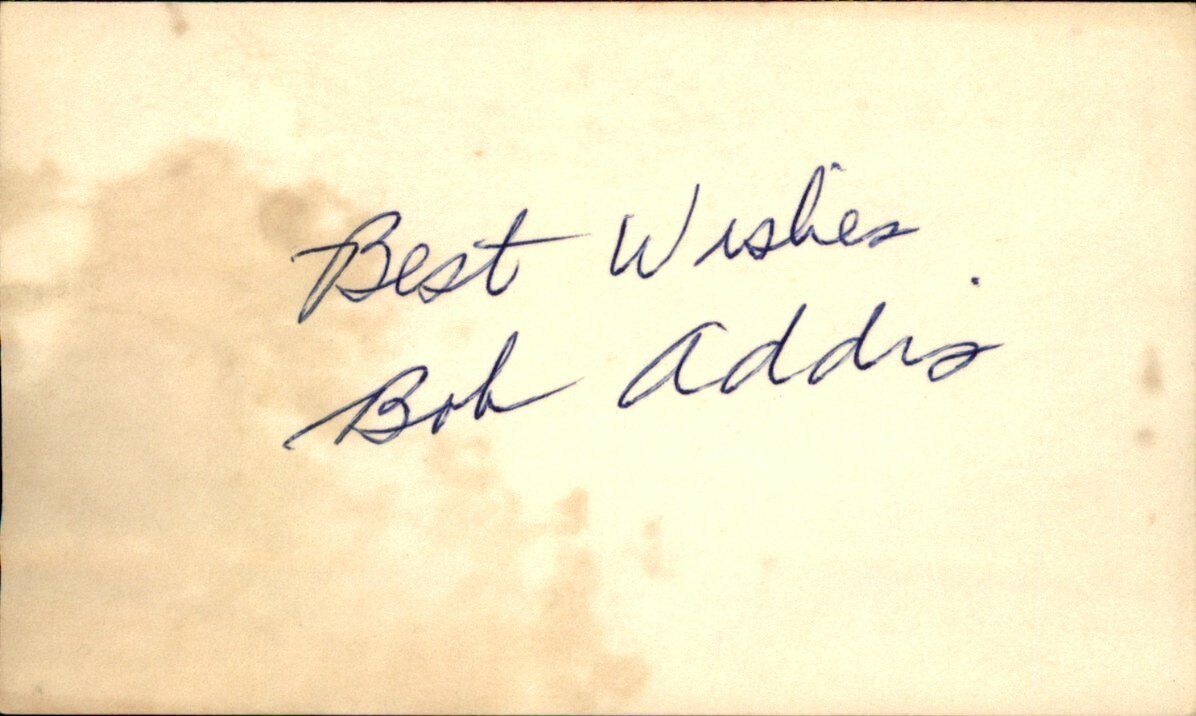 Best Wishes
Bob Addis